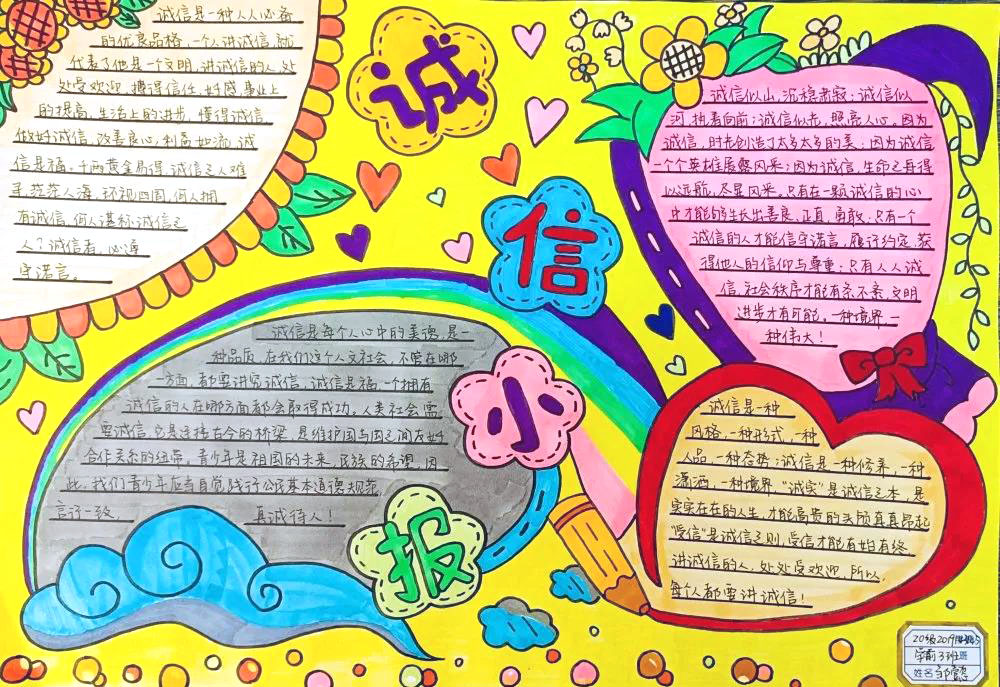 诚信是一种人人必备
的优良品格,一个人讲诚信,就
代表了他是一个文明,讲诚信的人,处
处受欢迎,博得信任,好感,事业上
的提高,生活上的进步,懂得诚信,
做好诚信,改善良心,利高如流,诚
信是福,千两黄金易得,诚信之人难
寻,茫茫人海,环视四周,何人拥
有诚信,何人堪称诚信之
人?诚信者,必遵
守诺言。
诚
信
小
报
诚信似山,沉稳肃寂;诚信似
河,执着向前;诚信似光,照亮人心。因为
诚信,时光创造了太多太多的美;因为诚信
一个个英雄展露风采;因为诚信,生命之舟得
以远航,尽显风采。只有在一颗诚信的心
中才能够生长出善良、正直、勇敢;只有一个
诚信的人才能信守诺言,履行约定,获
得他人的信仰与尊重;只有人人诚
信,社会秩序才能有条不紊,文明
进步才有可能,一种境界一
种伟大!
诚信是每个人心中的美德,是一
种品质,在我们这个人文社会,不管在哪
一方面,都要讲究诚信,诚信是福,一个拥有
诚信的人在哪方面都会取得成功。人类社会需
要诚信,它是连接古今的桥梁,是维护国与国之间友好
合作关系的纽带。青少年是祖国的未来,民族的希望,因
此,我们青少年应当自觉践行公民基本道德规范,
言行一致,真诚待人!
诚信是一种
风格,一种形式,一种
人品,一种态势;诚信是一种修养,一种
潇洒,一种境界,"诚实"是诚信之本,是
实实在在的人生,才能高贵的头颅直直昂起
"受信"是诚信之则,受信才能有始有终,
讲诚信的人,处处受欢迎,所以,
每个人都要讲诚信!
学前3班
姓名